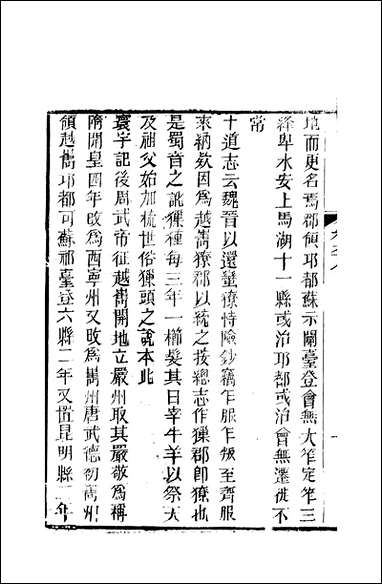 地而更名焉郡領邛都蘇示闌臺登會無大筰定筰三
絳卑水安上馬湖十一縣或治邛都或治會無遷徙不
常
十道志云魏晉以還蠻獠恃險鈔竊乍服乍叛至齊服
來納欵因爲越嶲獠郡以統之按總志作玀郡卽獠也
是蜀音之訛玀種每三年一櫛髮其日宰牛羊以祭天
及祖父始加梳世俗玀頭之說本此
寰宇記後周武帝征越嶲開地立嚴州取其嚴敬爲稱
隋開皇四年改爲西寧州又改爲嶲州唐武德初嶲州
領越嶲邛都可蘇祁臺登六縣二年又置昆明縣三年